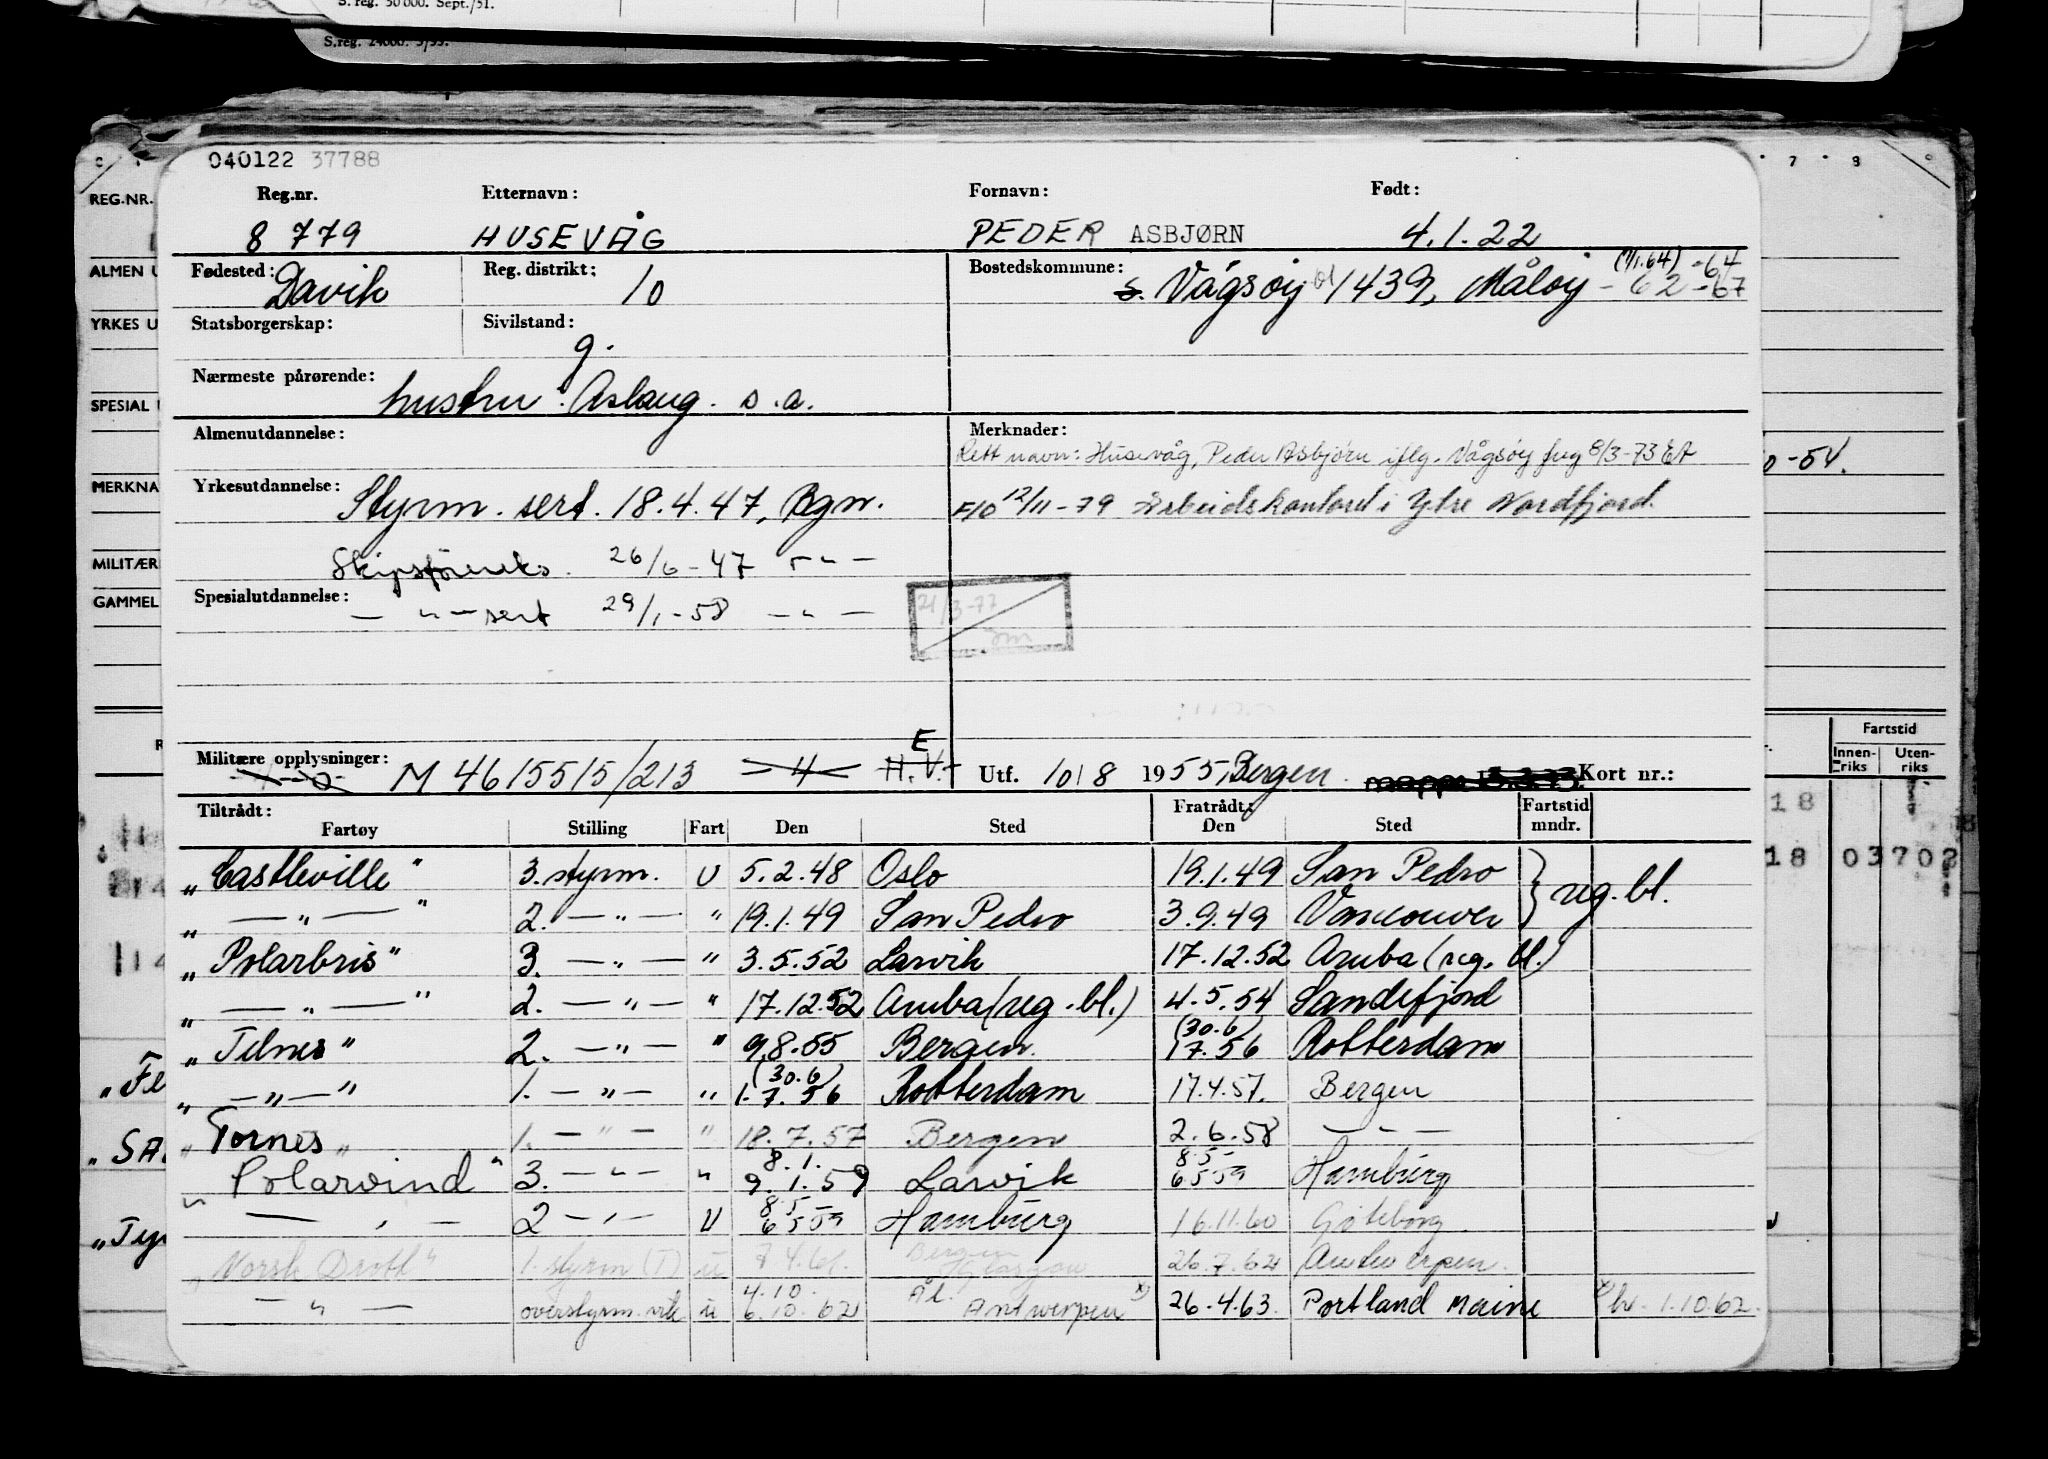 S. reg. 50000. Sept./51.
S.reg. 24000. 5/53.
040122 37788
7 8
REG.NR. Reg.nr. Etternavn: Fornavn: Født:
8 779 HUSEVÅG PEDER ASBJØRN 4.1.22
ALMEN U Fødested: Davik Reg. distrikt: 10 Bostedskommune: s. Vågsøy 1439, Måløy - 62 -67
(1/1.64) -64
YRKES U Statsborgerskap: Sivilstand: g.
SPESIAL Nærmeste pårørende: hustru: Aslaug. s.a.
Almenutdannelse: Merknader:
Rett navn: Husevåg, Peder Asbjørn iflg. Vågsøy 8/3-73
0-54.
MERKNA Yrkesutdannelse: Styrm. sert. 18.4.47, Bgn. F10 12/11-79 Arbeidskontoret i Ytre Nordfjord.
MILITÆR Skipsførereks. 26/6-47 -"-
GAMMEL Spesialutdannelse: -"- sert 29/1-58 -"-
21/3-77
Fartstid
Innen-riks Uten-riks
Militære opplysninger: M 4615515/213 4 H.V. E Utf. 10/8 1955, Bergen. Kort nr.:
Tiltrådt: Fratrådt: Fartstid mndr.
Fartøy Stilling Fart Den Sted Den Sted
18
18 03702
"Castleville" 3. styrm. U 5.2.48 Oslo 19.1.49 San Pedro } reg. bl.
" — " — " 2. — " — " 19.1.49 San Pedro 3.9.49 Vancouver
"Polarbris" 3. — " — " 3.5.52 Larvik 17.12.52 Aruba (reg. bl.)
" — " — " 2. — " — " 17.12.52 Aruba (reg. bl.) 4.5.54 Sandefjord
"Tilnes" 2. — " — " 9.8.55 Bergen. (30.6) 1.7.56 Rotterdam
"Fl
" — " — " 1. — " — " (30.6) 1.7.56 Rotterdam 17.4.57. Bergen
"Tornes" 1. — " — " 18.7.57 Bergen 2.6.58 — " —
"SA
"Polarvind" 3. — " — " 8.1. 9.1.59 Larvik 8.5 6.5.59 Hamburg
— " — 2 — " — U 8.5 6.5.59 Hamburg 16.11.60 Göteborg
"Ty
"Norsk Drott" 1. styrm (T) u 7.4.61. Bergen Glasgow 26.7.62 Antwerpen.
— " — overstyrm. vik u 4.10. 6.10.62 Ål. Antwerpen x) 26.4.63. Portland Maine x) hv. 1.10.62.